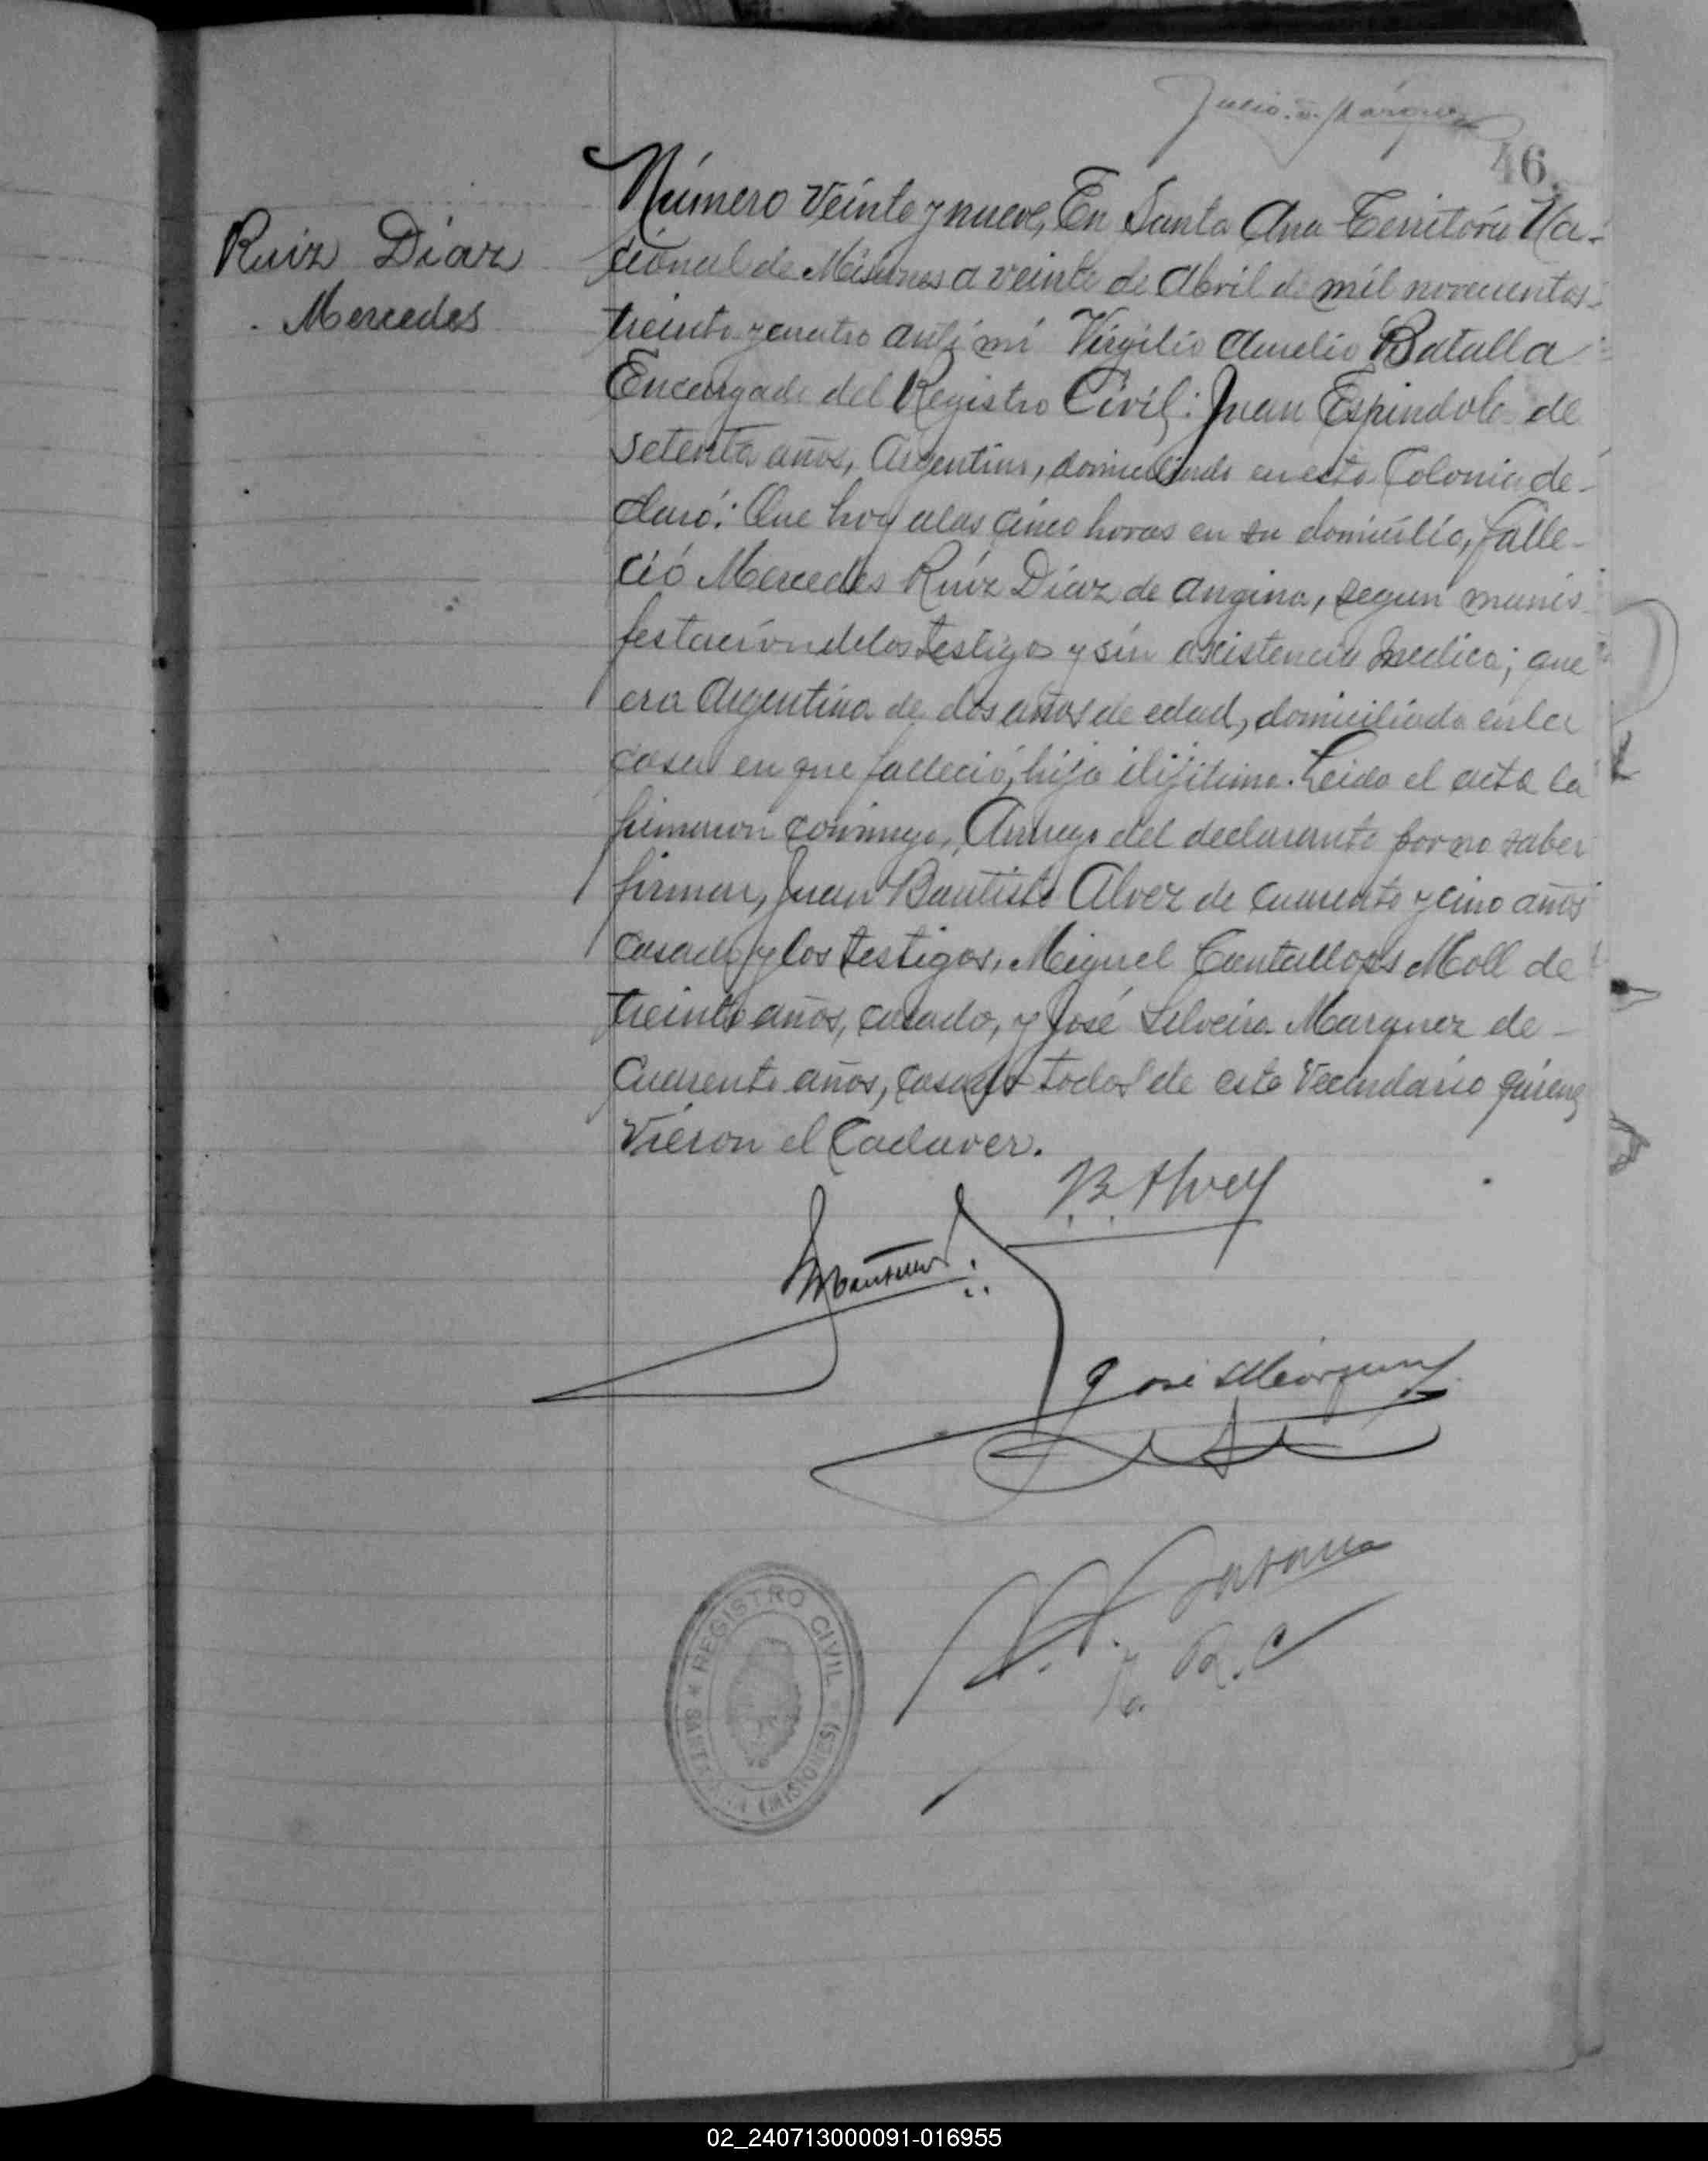 46.
Ruiz Diaz
Mercedes
Número veinte y nueve, En Santa Ana Territorio Na-
cional de Misiones a veinte de Abril de mil novecientos
treinta y cuatro ante mi Virgilio Aurelio Batalla
Encargado del Registro Civil: Juan Espindola de
setenta años, Argentino, domiciliado en esta Colonia de-
claró: Que hoy a las cinco horas en su domicilio, falle-
ció Mercedes Ruíz Díaz de angina, segun manis
festacion de los testigos y sin asistencia medica; que
era Argentina de dos años de edad, domiciliada en la
casa en que falleció, hija ilijitima. Leida el acta la
firmaron conmigo, Arruego del declarante por no saber
firmar, Juan Bautista Alvez de cuarenta y cinco años
casado y los testigos, Miguel Cantallops Moll de
treinta años, casado, y José Silveira Marquez de -
cuarenta años, casado todos de este Vecindario quienes
vieron el Cadaver.
B. Alvez
José Márquez
R. C
REGISTRO CIVIL
SANTA ANA (MISIONES)
02_240713000091-016955